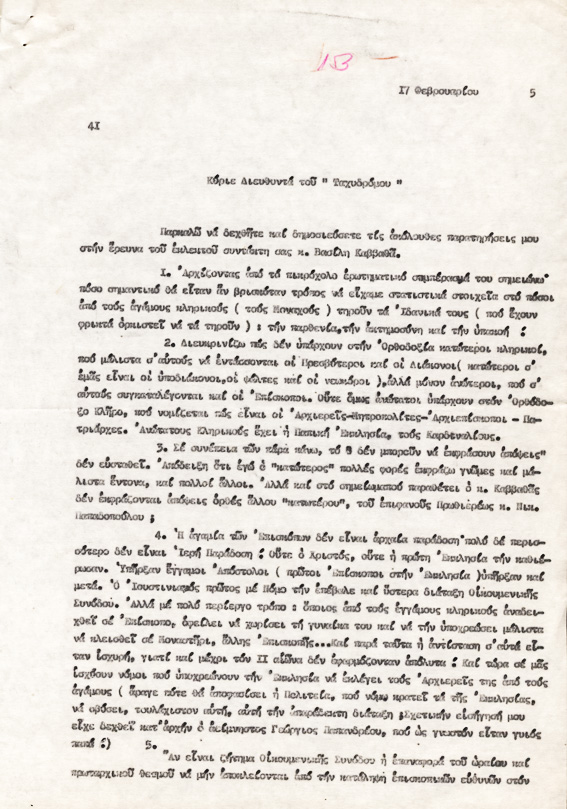 13
17 Φεβρουαρίου 5
41
Κύριε Διευθυντά τοῦ " Ταχυδρόμου "
Παρακαλῶ νά δεχθῆτε καί δημοσιεύσετε τίς ἀκόλουθες παρατηρήσεις μου
στήν ἔρευνα τοῦ ἐκλεκτοῦ συντάκτη σας κ. Βασίλη Καββαθᾶ.
1. Ἀρχίζοντας ἀπό τό πικρόχολο ἐρωτηματικό συμπέρασμά του σημειώνω
πόσο σημαντικό θά εἶταν ἄν βρισκόταν τρόπος νά εἴχαμε στατιστικά στοιχεῖα στό πόσοι
ἀπό τούς ἀγάμους κληρικούς ( τούς Μοναχούς ) τηροῦν τά Ἰδανικά τους ( πού ἔχουν
φρικτά ὁρκιστεῖ νά τά τηροῦν ) : τήν παρθενία,τήν ἀκτημοσύνη καί τήν ὑπακοή !
2. Διευκρινίζω πώς δέν ὑπάρχουν στήν Ὀρθοδοξία κατώτεροι κληρικοί,
πού μάλιστα σ'αὐτούς νά ἐντάσσονται οἱ Πρεσβύτεροι καί οἱ Διάκονοι( κατώτεροι σ'
ἐμᾶς εἶναι οἱ ὑποδιάκονοι,οἱ ψάλτες καί οἱ νεωκόροι ),ἀλλά μόνον ἀνώτεροι, πού σ'
αὐτούς συγκαταλέγονται καί οἱ Ἐπίσκοποι. Οὔτε ὅμως ἀνώτατοι ὑπάρχουν στόν Ὀρθόδο-
ξο Κλῆρο, πού νομίζεται πώς εἶναι οἱ Ἀρχιερεῖς-Μητροπολίτες-Ἀρχιεπίσκοποι - Πα-
τριάρχες. Ἀνώτατους Κληρικούς ἔχει ἡ Παπική Ἐκκλησία, τούς Καρδιναλίους.
3. Σέ συνέπεια τῶν κάρά κάνω, τό δέν μποροῦν νά ἐκφράσουν ἀπόψεις"
δέν εὐσταθεῖ. Ἀπόδειξη ὅτι ἐγώ ὁ "κατώτερος" πολλές φορές ἐκφράζω γνῶμες καί μά-
λιστα ἔντονα, καί πολλοί ἄλλοι. Ἀλλά καί στό σημείωμα πού παραθέτει ὁ κ. Καββαθᾶς
δέν ἐκφράζονται ἀπόψεις ὀρθές ἄλλου "κατωτέρου", τοῦ ἐπιφανοῦς Πρωθιερέως κ. Νικ.
Παπαδοπούλου ;
4. Ἡ ἀγαμία τῶν Ἐπισκόπων δέν εἶναι ἀρχαία παράδοση πολύ δέ περισ-
σότερο δέν εἶναι Ἱερή Παράδοση ! Οὔτε ὁ Χριστός, οὔτε ἡ πρώτη Ἐκκλησία τήν καθιέ-
ρωσαν. Ὑπῆρξαν ἔγγαμοι Ἀπόστολοι ( πρῶτοι Ἐπίσκοποι στήν Ἐκκλησία )ὑπῆρξαν καί
μετά. Ὁ Ἰουστινιανός πρῶτος μέ Νόμο τήν ἐπέβαλε καί ὕστερα διάταξη Οἰκουμενικῆς
Συνόδου. Ἀλλά μέ πολύ περίεργο τρόπο : ὅποιος ἀπό τούς ἐγγάμους κληρικούς ἀναδει-
χθεῖ σέ Ἐπίσκοπο, ὀφείλει νά χωρίσει τή γυναίκα του καί νά τήν ὑποχρεώσει μάλιστα
νά κλεισθεῖ σέ Μοναστήρι, ἄλλης Ἐπισκοπῆς...Καί παρά ταῦτα ἡ ἀντίσταση σ'αὐτά εἶ-
ταν ἰσχυρή, γιατί καί μέχρι τόν 11 αἰώνα δέν ἐφαρμόζονταν ἀπόλυτα ! Καί τώρα σέ μᾶς
ἰσχύουν νόμοι πού ὑποχρεώνουν τήν Ἐκκλησία νά ἐκλέγει τούς Ἀρχιερεῖς της ἀπό τούς
ἀγάμους ( ἄραγε πότε θά ἀποφασίσει ἡ Πολιτεία, πού νόμῳ κρατεῖ τά τῆς Ἐκκλησίας,
νά σβύσει, τουλάχιστον αὐτή, αὐτή τήν ἀπαράδεκτη διάταξη ;Σχετική εἰσήγησή μου
εἶχε δεχθεῖ κατ'ἀρχήν ὁ ἀείμνηστος Γεώργιος Παπανδρέου, πού ὡς γνωστόν εἶταν γυιός
παπᾶ !) 5.
Ἄν εἶναι ζήτημα Οἰκουμενικῆς Συνόδου ἡ ἐπαναφορά τοῦ ὡραίου καί
πρωταρχικοῦ θεσμοῦ νά μήν ἀποκλείονται ἀπό τήν κατάληψη ἐπισκοπικῶν εὐθυνῶν στόν